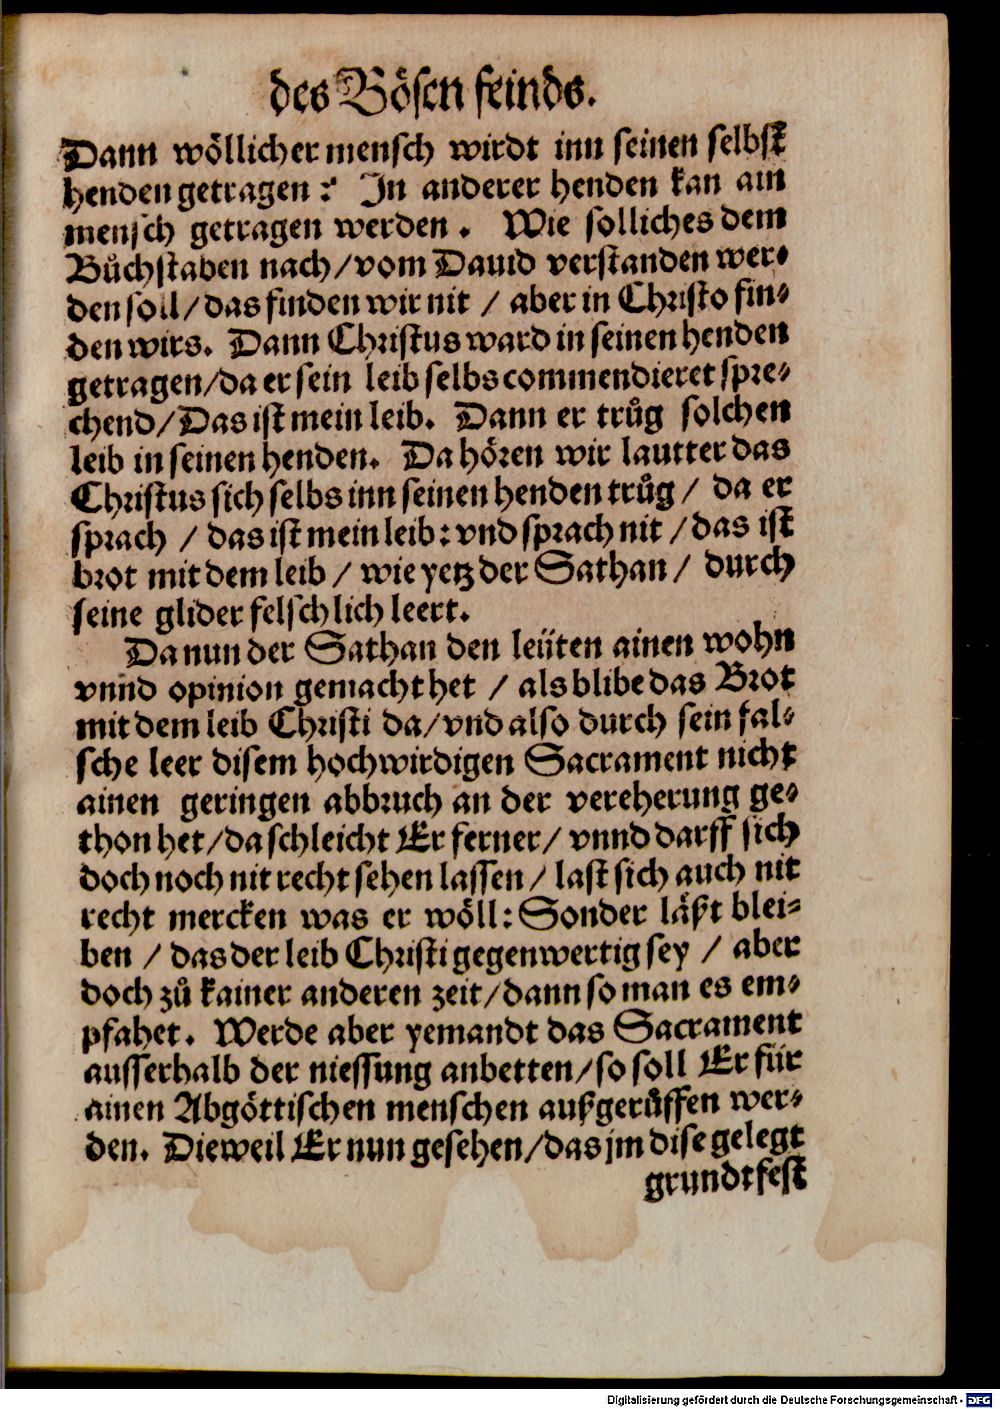 des Bösen feinds.
Dann wöllicher mensch wirdt inn seinen selbst
henden getragen: In anderer henden kan ain
mensch getragen werden. Wie solliches dem
Bůchstaben nach/vom Dauid verstanden wer⸗
den soll/das finden wir nit / aber in Christo fin⸗
den wirs. Dann Christus ward in seinen henden
getragen/da er sein leib selbs commendieret spre⸗
chend/Das ist mein leib. Dann er trůg solchen
leib in seinen henden. Da hören wir lautter das
Christus sich selbs inn seinen henden trůg / da er
sprach / das ist mein leib: vnd sprach nit / das ist
brot mit dem leib / wie yetz der Sathan / durch
seine glider felschlich leert.
Da nun der Sathan den leüten ainen wohn
vnnd opinion gemacht het / als blibe das Brot
mit dem leib Christi da/vnd also durch sein fal⸗
sche leer disem hochwirdigen Sacrament nicht
ainen geringen abbruch an der vereherung ge⸗
thon het/da schleicht Er ferner/ vnnd darff sich
doch noch nit recht sehen lassen / last sich auch nit
recht mercken was er wöll: Sonder läßt blei⸗
ben / das der leib Christi gegenwertig sey / aber
doch zů kainer anderen zeit/dann so man es em⸗
pfahet. Werde aber yemandt das Sacrament
ausserhalb der niessung anbetten/so soll Er für
ainen Abgöttischen menschen außgerůffen wer⸗
den. Dieweil Er nun gesehen/das jm dise gelegt
grundtfest
Digitalisierung gefördert durch die Deutsche Forschungsgemeinschaft - DFG